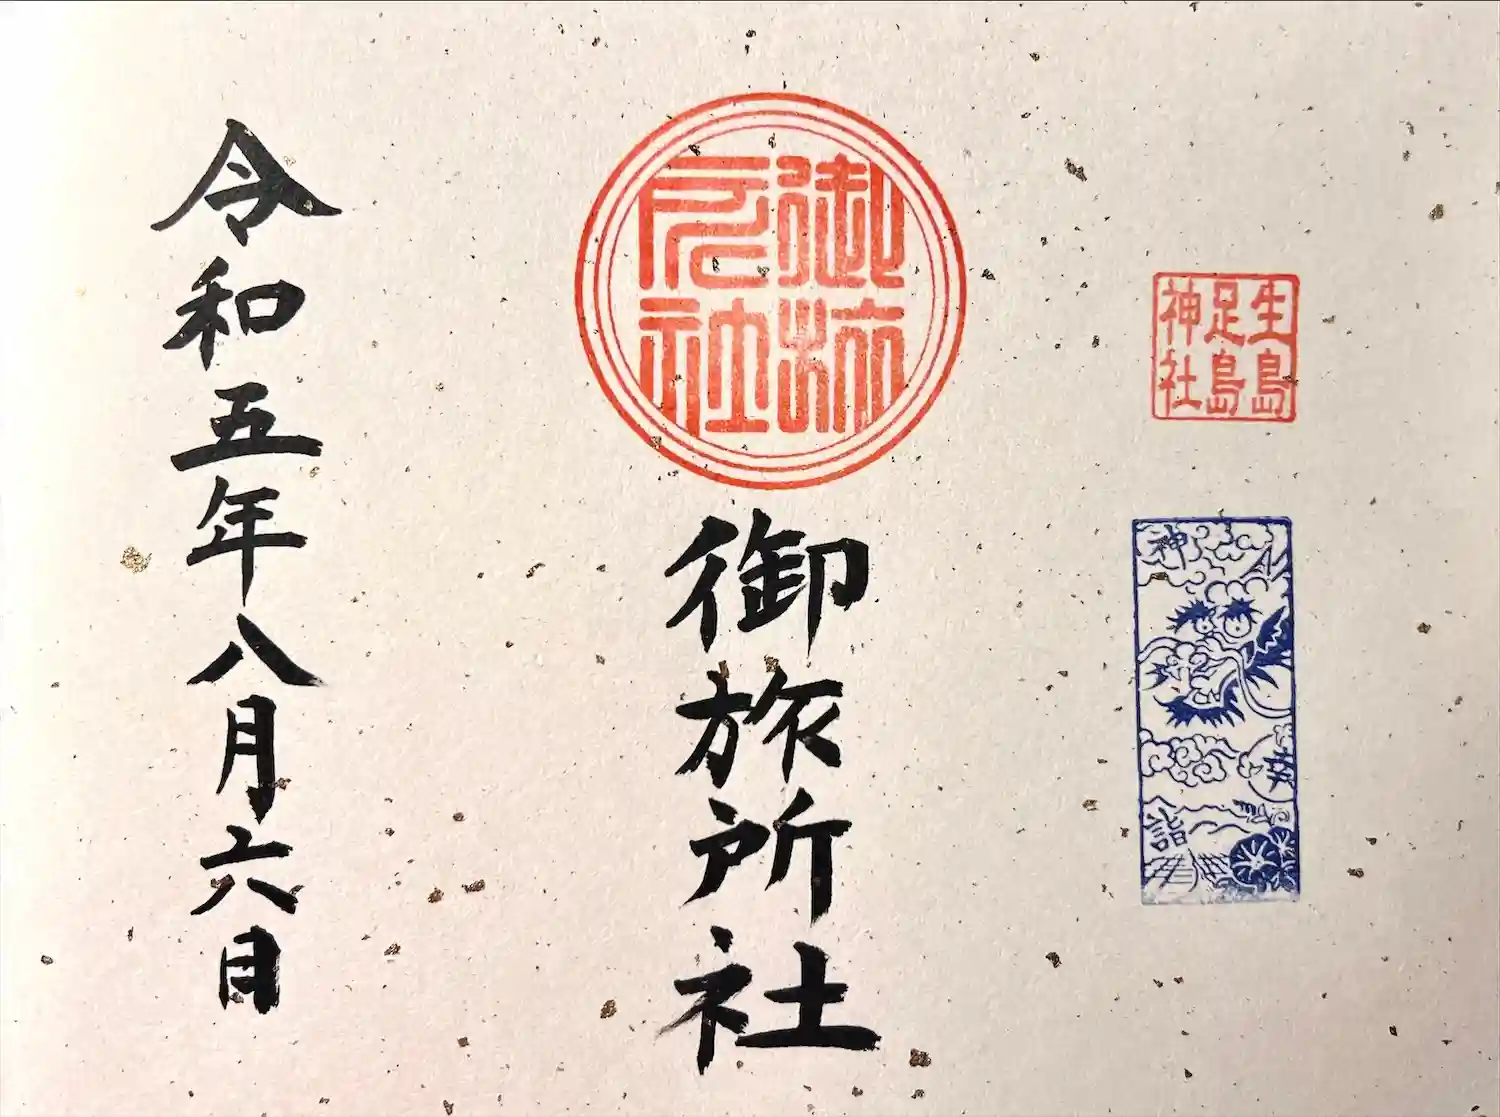 生島
足島
神社
神
幸
詣
御旅
所社
御旅所社
令和五年八月六日